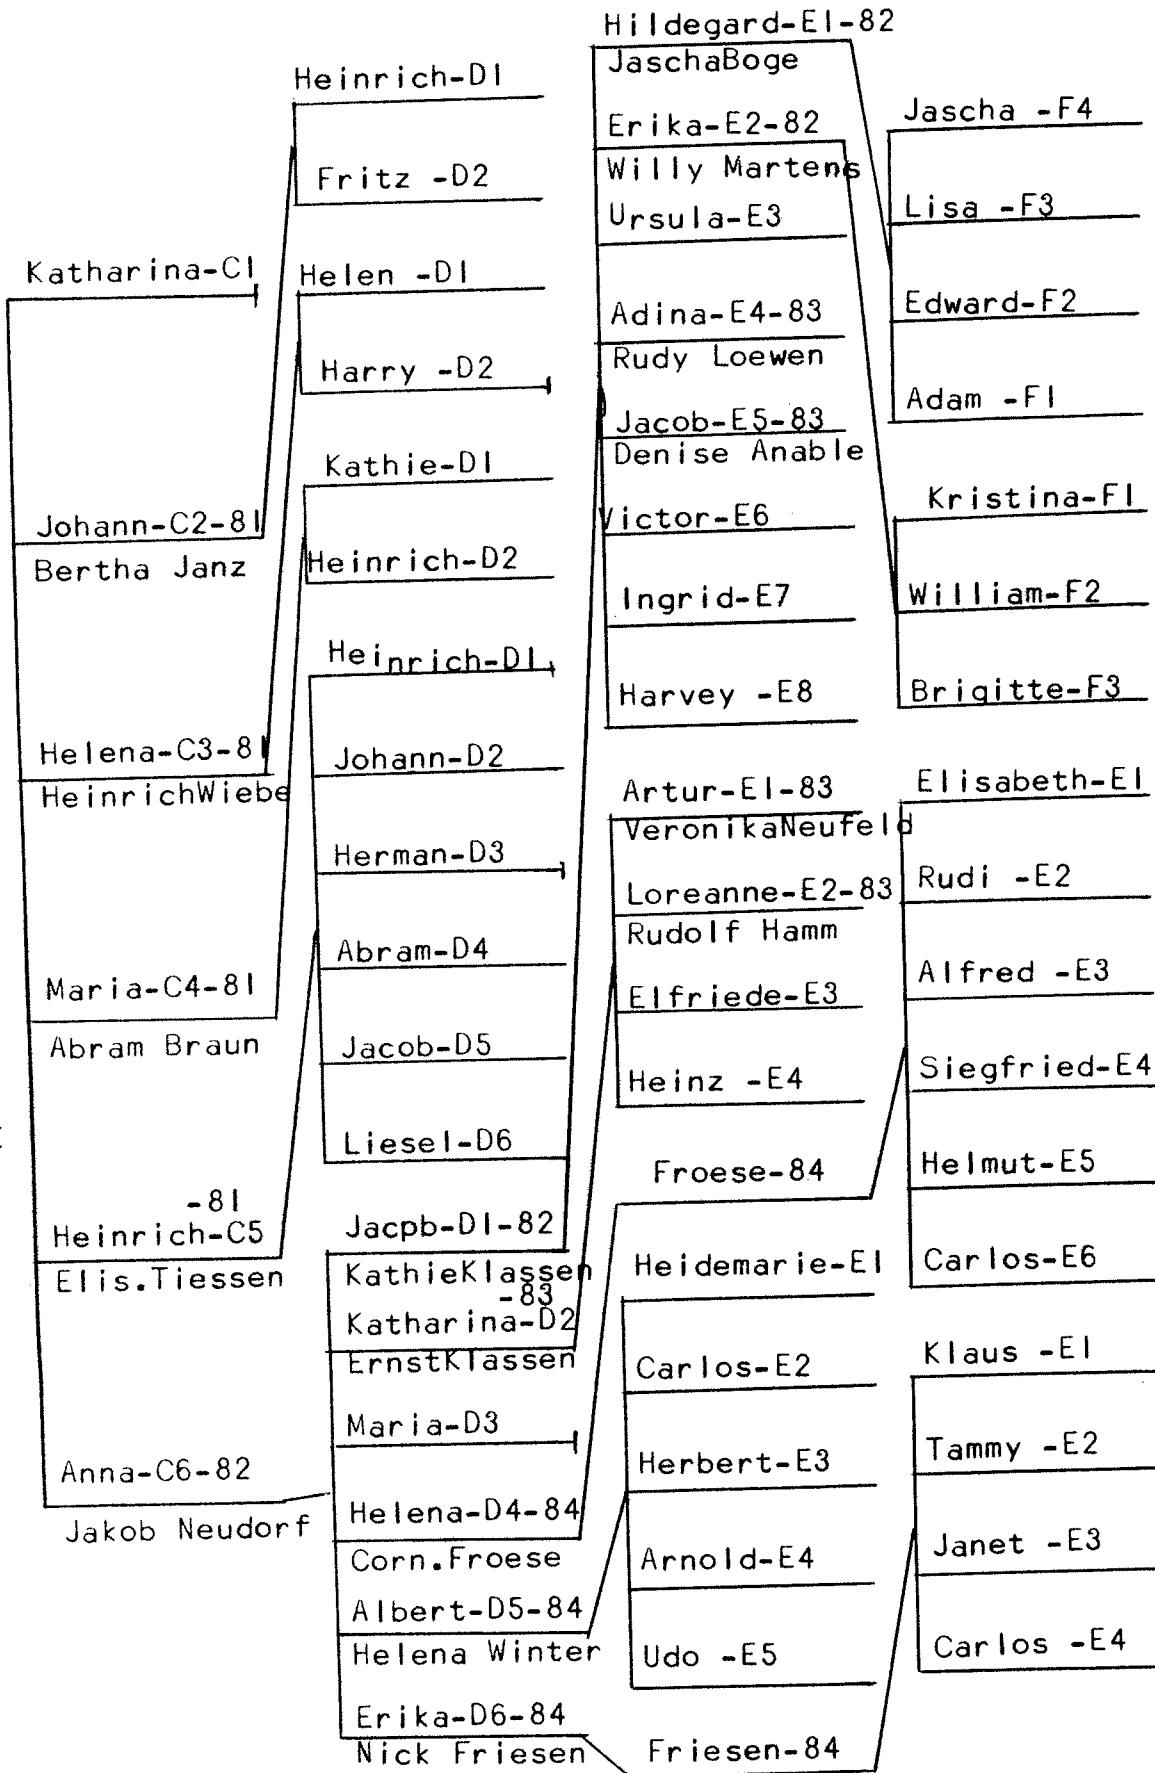 Katharina-C1
Johann-C2-81
Bertha Janz
Helena-C3-81
HeinrichWiebe
Maria-C4-81
Abram Braun
-81
Heinrich-C5
Elis.Tiessen
Anna-C6-82
Jakob Neudorf
Heinrich-D1
Fritz -D2
Helen -D1
Harry -D2
Kathie-D1
Heinrich-D2
Heinrich-D1
Johann-D2
Herman-D3
Abram-D4
Jacob-D5
Liesel-D6
Jacpb-D1-82
KathieKlassen
-83
Katharina-D2
ErnstKlassen
Maria-D3
Helena-D4-84
Corn.Froese
Albert-D5-84
Helena Winter
Erika-D6-84
Nick Friesen
Hildegard-E1-82
JaschaBoge
Erika-E2-82
Willy Martens
Ursula-E3
Adina-E4-83
Rudy Loewen
Jacob-E5-83
Denise Anable
Victor-E6
Ingrid-E7
Harvey -E8
Artur-E1-83
VeronikaNeufeld
Loreanne-E2-83
Rudolf Hamm
Elfriede-E3
Heinz -E4
Froese-84
Heidemarie-E1
Carlos-E2
Herbert-E3
Arnold-E4
Udo -E5
Friesen-84
Jascha -F4
Lisa -F3
Edward-F2
Adam -F1
Kristina-F1
William-F2
Brigitte-F3
Elisabeth-E1
Rudi -E2
Alfred -E3
Siegfried-E4
Helmut-E5
Carlos-E6
Klaus -E1
Tammy -E2
Janet -E3
Carlos -E4